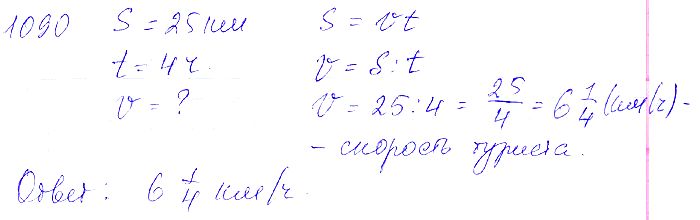 1090 S = 25 км S = vt
t = 4 ч. v = S : t
v = ? v = 25 : 4 = 25/4 = 6 1/4 (км/ч) -
- скорость туриста.
Ответ: 6 1/4 км/ч.